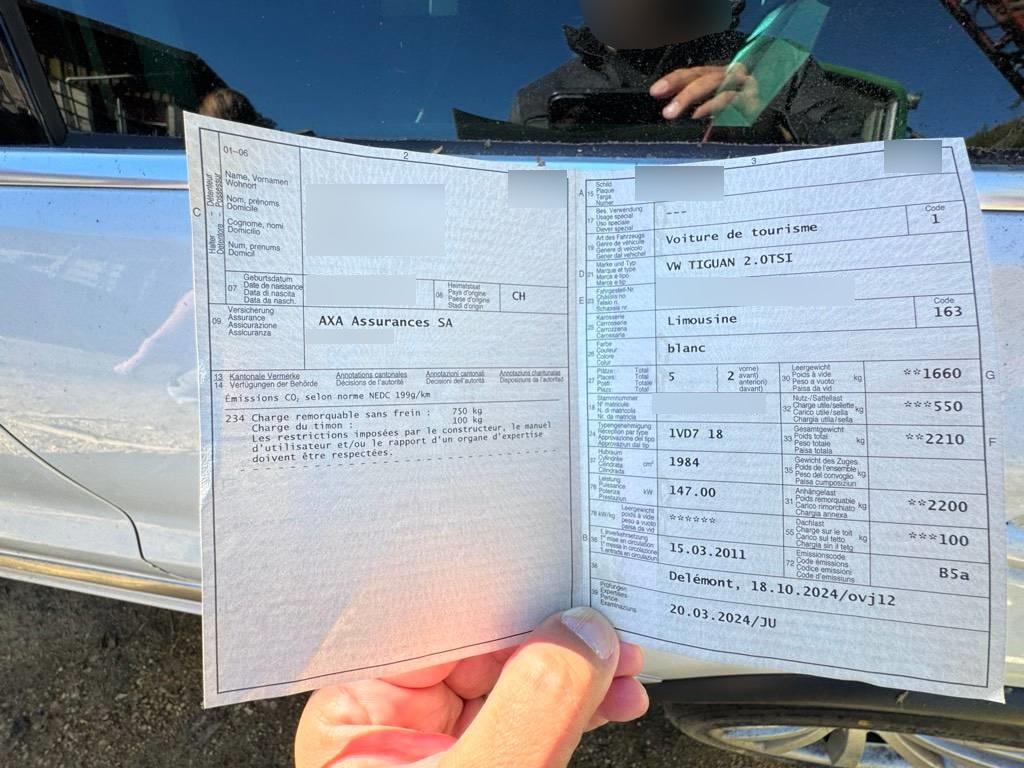 01–06
2
Halter – Détenteur
Detentore – Possessur
C
Name, Vornamen
Wohnort
Nom, prénoms
Domicile
Cognome, nomi
Domicilio
Num, prenums
Domicil
07
Geburtsdatum
Date de naissance
Data di nascita
Data da nasch.
06
Heimatstaat
Pays d'origine
Paese d'origine
Stadi d'origin
CH
09
Versicherung
Assurance
Assicurazione
Assicuranza
AXA Assurances SA
13 Kantonale Vermerke Annotations cantonales Annotazioni cantonali Annotaziuns chantunalas
14 Verfügungen der Behörde Décisions de l'autorité Decisioni dell'autorità Disposiziuns da l'autoritad
Émissions CO₂ selon norme NEDC 199g/km
234 Charge remorquable sans frein : 750 kg
Charge du timon : 100 kg
Les restrictions imposées par le constructeur, le manuel
d'utilisateur et/ou le rapport d'un organe d'expertise
doivent être respectées.
3
A
15
Schild
Plaque
Targa
Numer
17
Bes. Verwendung
Usage spécial
Uso speciale
Diever spezial
---
19
Art des Fahrzeugs
Genre de véhicule
Genere di veicolo
Gener dal vehichel
Voiture de tourisme
Code
1
D
21
Marke und Typ
Marque et type
Marca e tipo
Marca e tip
VW TIGUAN 2.0TSI
E
23
Fahrgestell-Nr.
Châssis no
Telaio n.
Schassis nr.
25
Karosserie
Carrosserie
Carrozzeria
Carossaria
Limousine
Code
163
26
Farbe
Couleur
Colore
Colur
blanc
27
Plätze: Total
Places: Total
Posti: Totale
Plazs: Total
5
2
vorne)
avant)
anteriori)
davant)
30
Leergewicht
Poids à vide
Peso a vuoto
Paisa da vid
kg
**1660
G
18
Stammnummer
N° matricule
N. di matricola
Nr. da matricla
32
Nutz-/Sattellast
Charge utile/sellette
Carico utile/sella
Chargia utila/sella
kg
***550
24
Typengenehmigung
Réception par type
Approvazione del tipo
Approvaziun dal tip
1VD7 18
33
Gesamtgewicht
Poids total
Peso totale
Paisa totala
kg
**2210
F
37
Hubraum
Cylindrée
Cilindrata
Cilindrada
cm³
1984
35
Gewicht des Zuges
Poids de l'ensemble
Peso del convoglio
Paisa cumposiziun
kg
76
Leistung
Puissance
Potenza
Prestaziun
kW
147.00
31
Anhängelast
Poids remorquable
Carico rimorchiato
Chargia annexa
kg
**2200
78 kW/kg
Leergewicht
poids à vide
peso a vuoto
paisa da vid
******
55
Dachlast
Charge sur le toit
Carico sul tetto
Chargia sin il tetg
kg
***100
B
36
1. Inverkehrsetzung
1re mise en circulation
1a messa in circolazione
1. entrada en circulaziun
15.03.2011
72
Emissionscode
Code émissions
Codice emissioni
Code d'emissiuns
B5a
38
Delémont, 18.10.2024/ovj12
39
Prüfungen
Expertises
Perizie
Examinaziuns
20.03.2024/JU